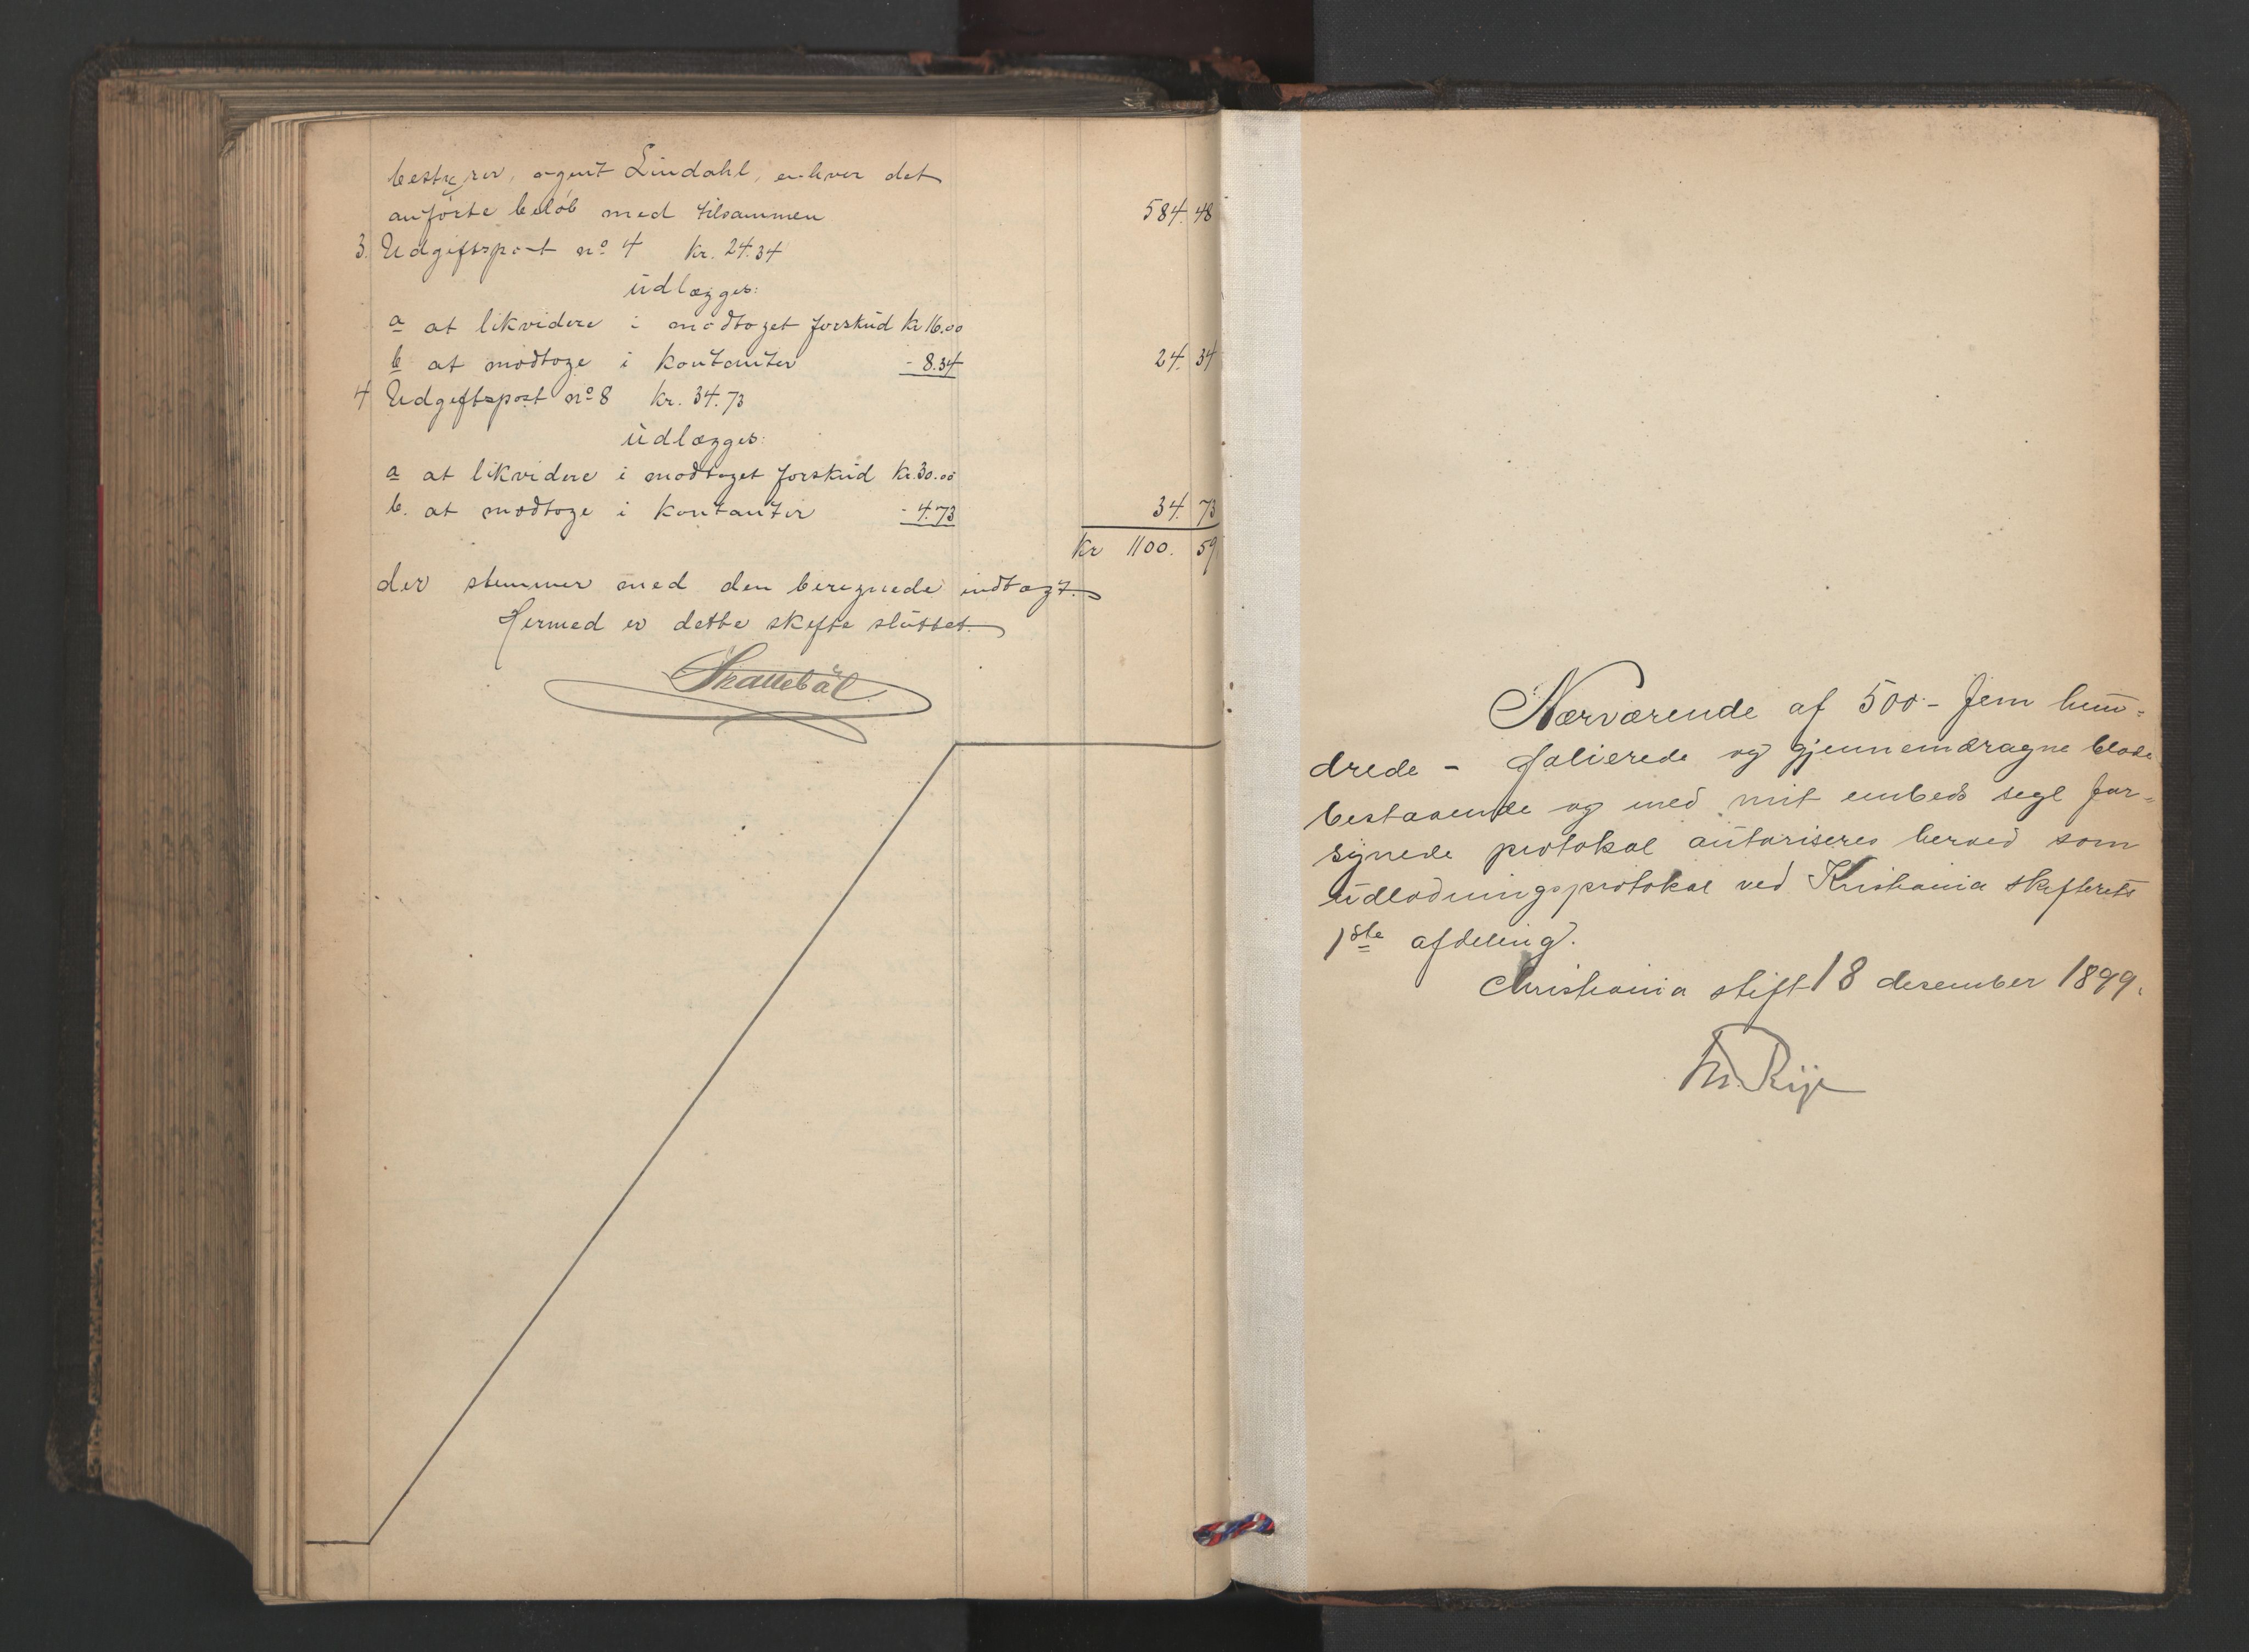 bestyrer, agent Lindahl, enhver det
anförte belöb med tilsammen 584.48
3. Udgiftspost nº 4 kr. 24.34
udlægges:
a at likvidere i modtaget forskud kr 16.00
b at modtage i kontanter - 8.34 24.34
4 Udgiftspost nº 8 kr. 34.73
udlægges:
a at likvidere i modtaget forskud kr. 30.00
b. at modtage i kontanter - 4.73 34.73
kr 1100.59
der stemmer med den beregnede indtægt.
Hermed er dette skifte sluttet.
Nærværende af 500 - fem hun=
drede - folierede og gjennemdragne blade
bestaaende og med mit embeds segl for=
synede protokol autoriseres herved som
udlodningsprotokol ved Kristiania skifterets
1ste afdeling.
Christiania stift 18 desember 1899.